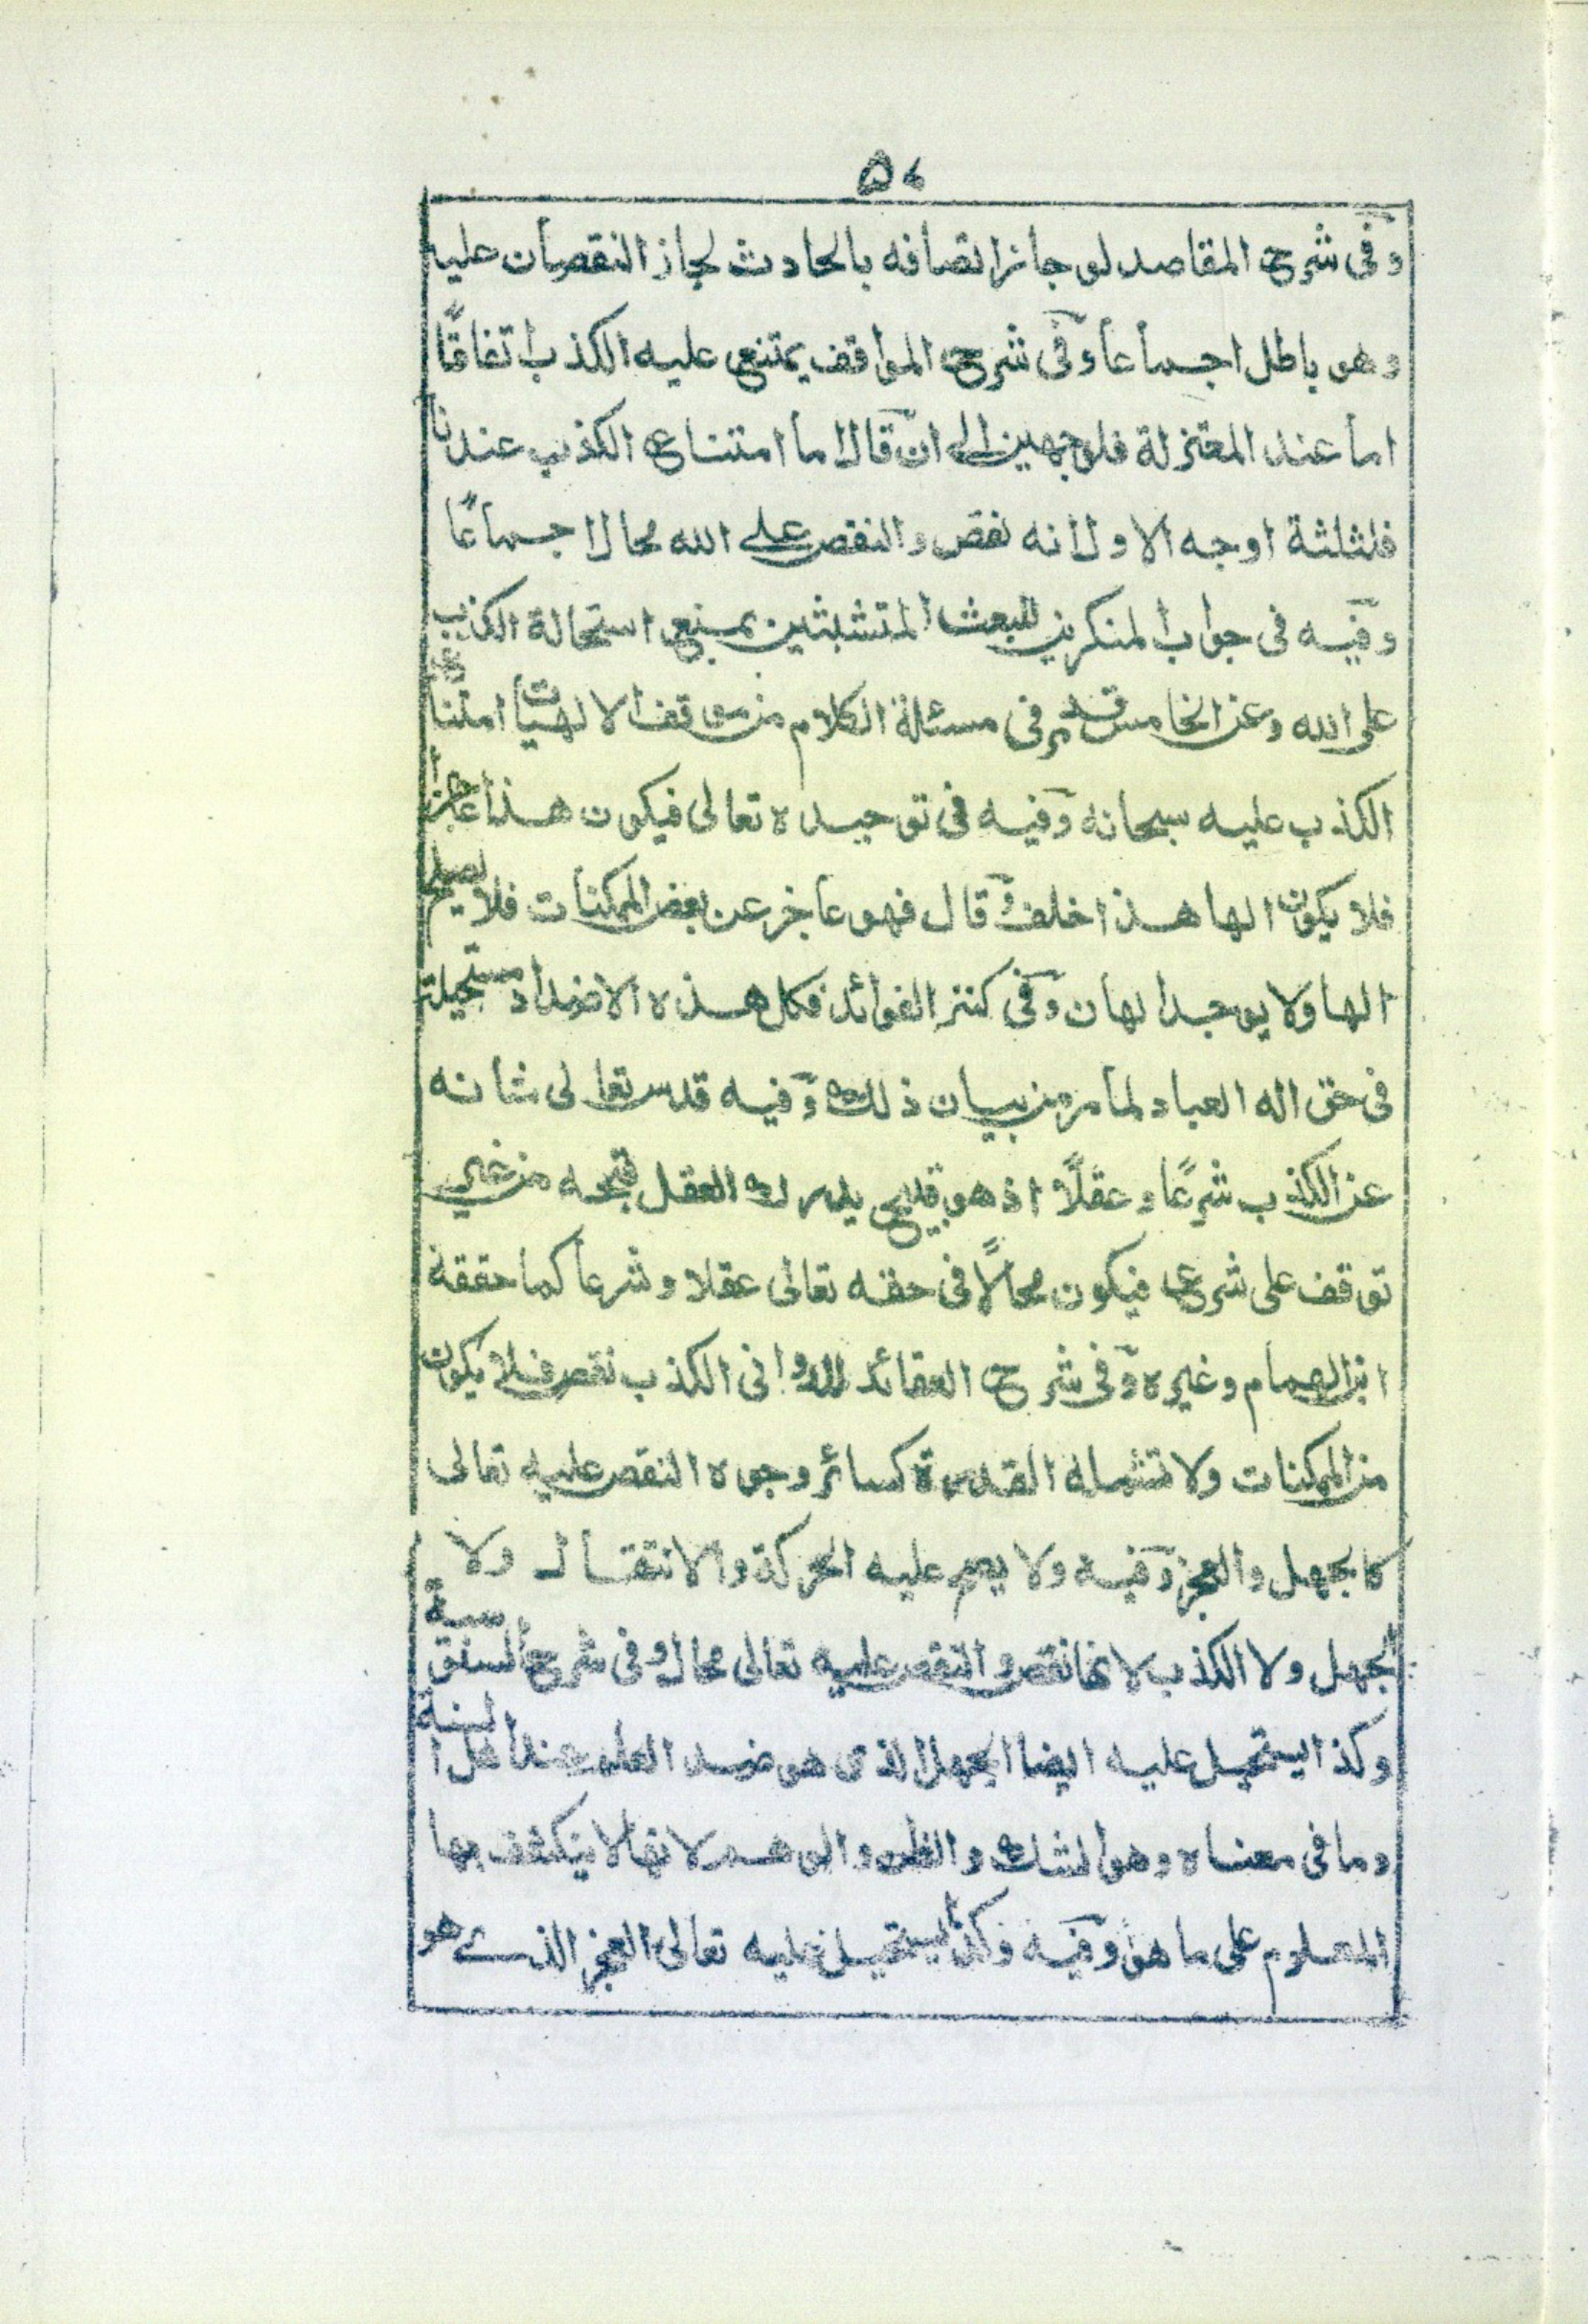 وفى شرح المقاصد لو جاز اتصافه بالحادث لجاز النقصان عليه
وهو باطل اجماعا وفى شرح المواقف يمتنع عليه الكذب اتفاقًا
اما عند المعتزلة فلوجهين الى ان قال اما امتناع الكذب عندنا
فلثلثة اوجه الاول انه نقص والنقص على الله محال اجماعًا
وفيه فى جواب المنكرين للبعث المتشبثين بمنع استحالة الكذب
على الله وعن الخامس قد مر فى مسئلة الكلام من موقف الالهيات امتناع
الكذب عليه سبحانه وفيه فى توحيده تعالى فيكون هذا عاجزا
فلا يكون الها هذا خلف وقال فهو عاجز عن بعض الممكنات فلا يصلح
الها ولا يوجد الهان وفى كنز الفوائد فكل هذه الاضداد مستحيلة
فى حق اله العباد لما مر من بيان ذلك وفيه قدس تعالى شانه
عن الكذب شرعًا وعقلًا اذ هو قبيح يدرك العقل قبحه من غير
توقف على شرع فيكون محالًا فى حقه تعالى عقلا وشرعا كما حققه
ابن الهمام وغيره وفى شرح العقائد للدوانى الكذب نقص فلا يكون
من الممكنات ولا تشمله القدرة كسائر وجوه النقص عليه تعالى
كالجهل والعجز وفيه ولا يصح عليه الحركة والانتقال ولا
الجهل ولا الكذب لانها نقص والنقص عليه تعالى محال وفى شرح السنوسية
وكذا يستحيل عليه ايضا الجهل الذى هو ضد العلم عند اهل السنة
وما فى معناه وهو الشك والظن والوهم لانها لا ينكشف بها
المعلوم على ما هو وفيه وكذا يستحيل عليه تعالى العجز الذى هو